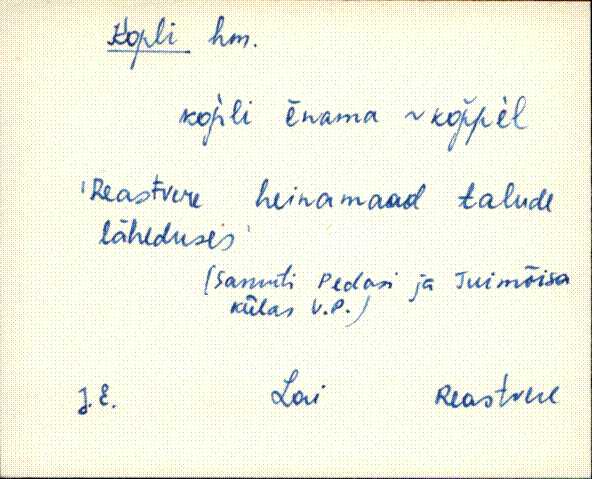 Kopli hm.
kop̀li ēnama ~ kop̆pèl
'Reastvere heinamaad talude
läheduses'
(Samuti Pedasi ja Tuimõisa
külas V.P.)
J.E. Lai Reastvere